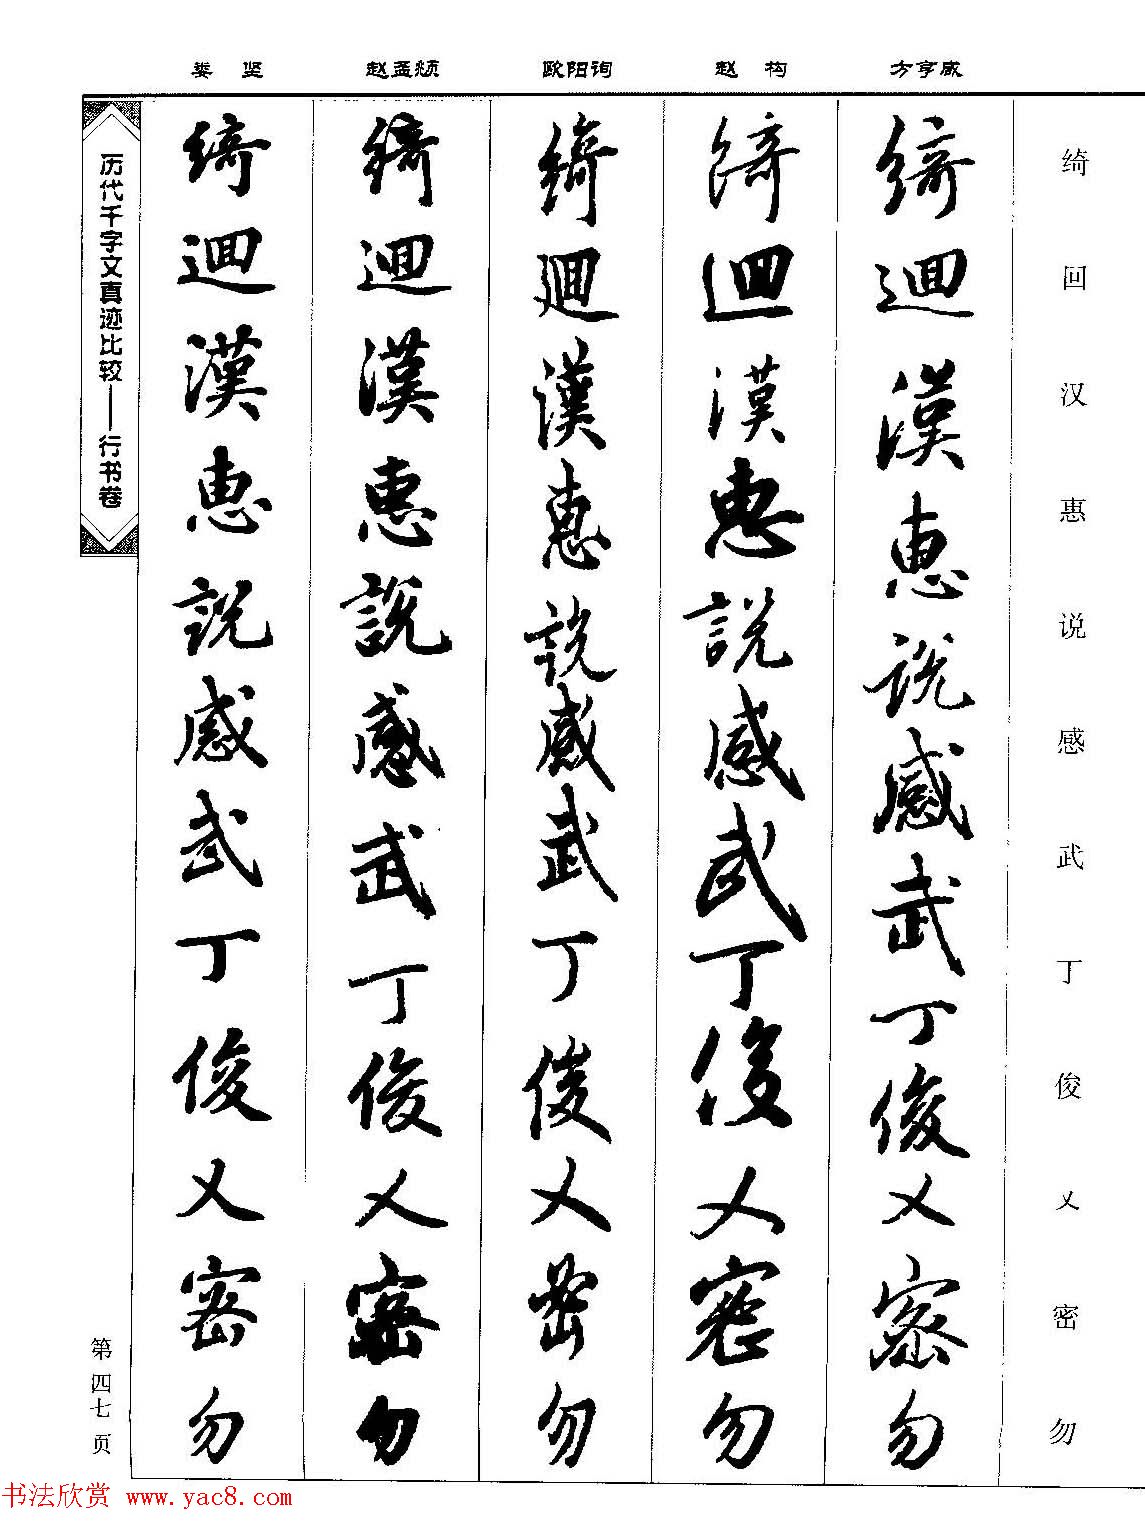 娄 坚 赵孟頫 欧阳询 赵 构 方亨咸
绮回汉惠说感武丁俊乂密勿
綺迴漢惠說感武丁俊乂密勿
綺迴漢惠說感武丁俊乂密勿
綺迴漢惠說感武丁俊乂密勿
綺迴漢惠說感武丁俊乂密勿
綺迴漢惠說感武丁俊乂密勿
历代千字文真迹比较——行书卷
第四七页
书法欣赏 www.yac8.com